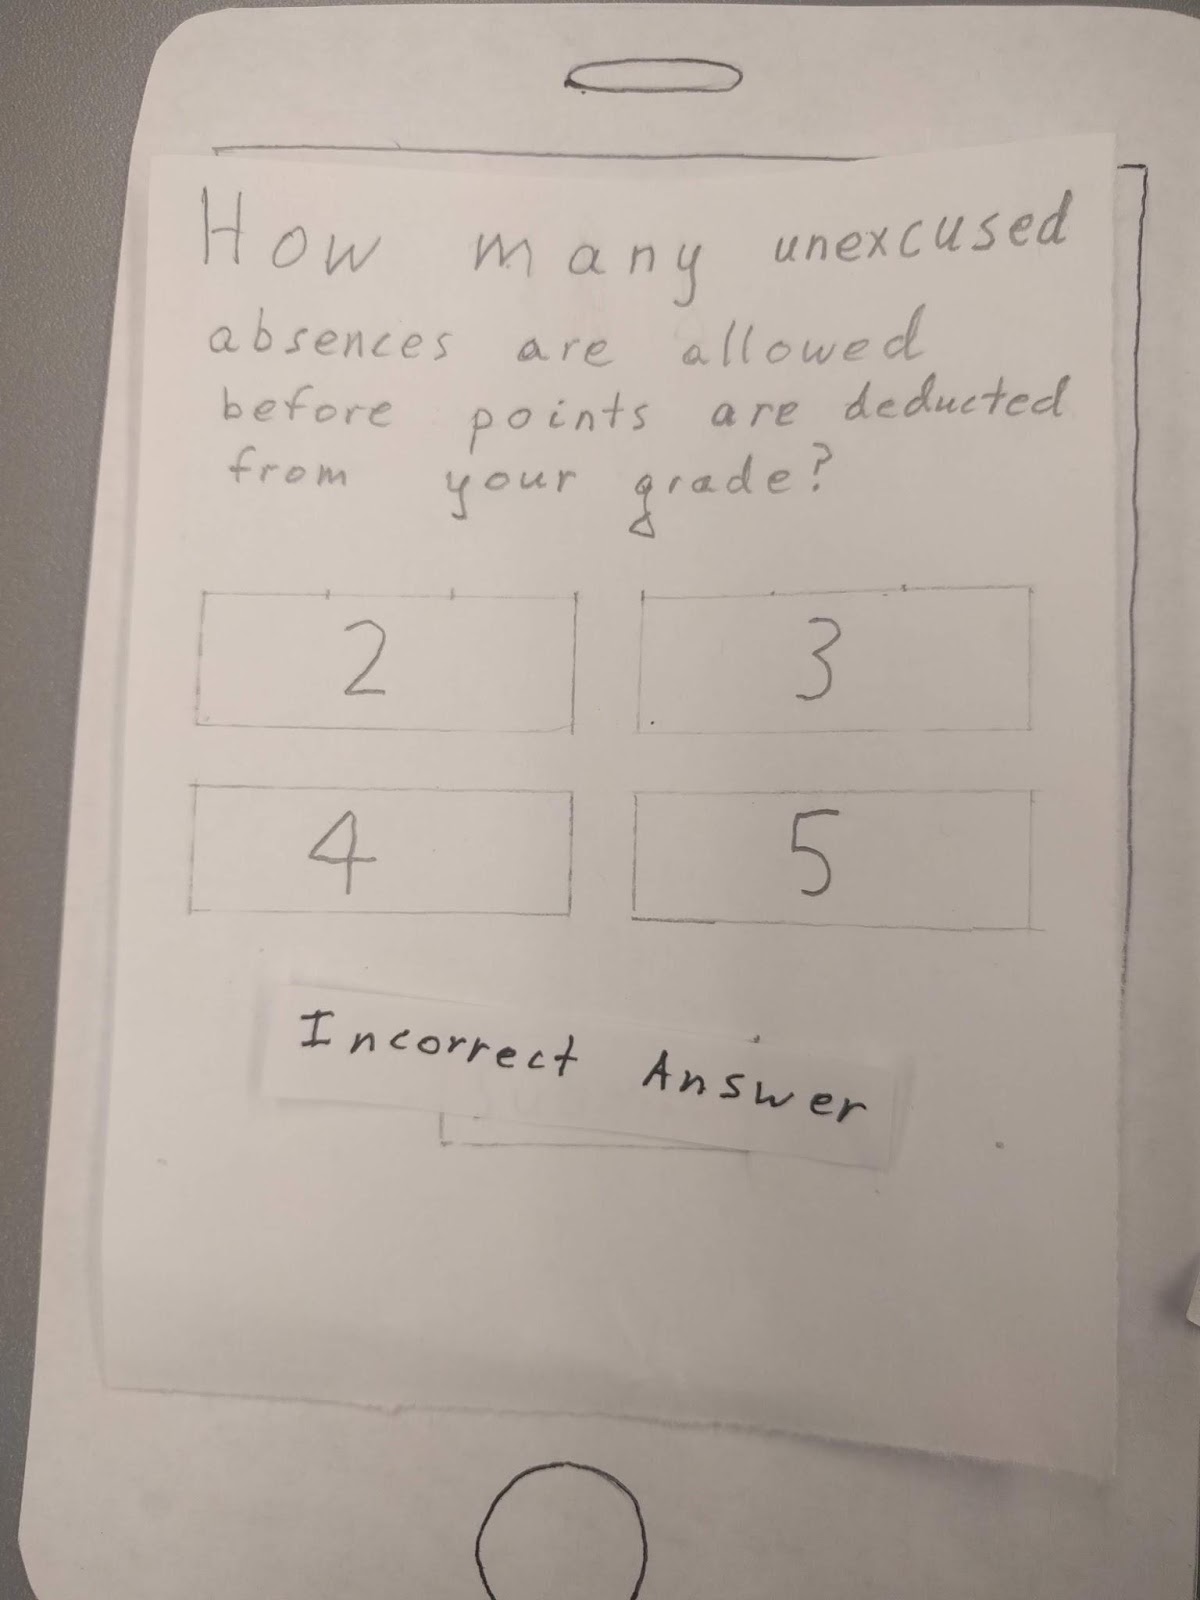 How many unexcused
absences are allowed
before points are deducted
from your grade?
2 3
4 5
Incorrect Answer